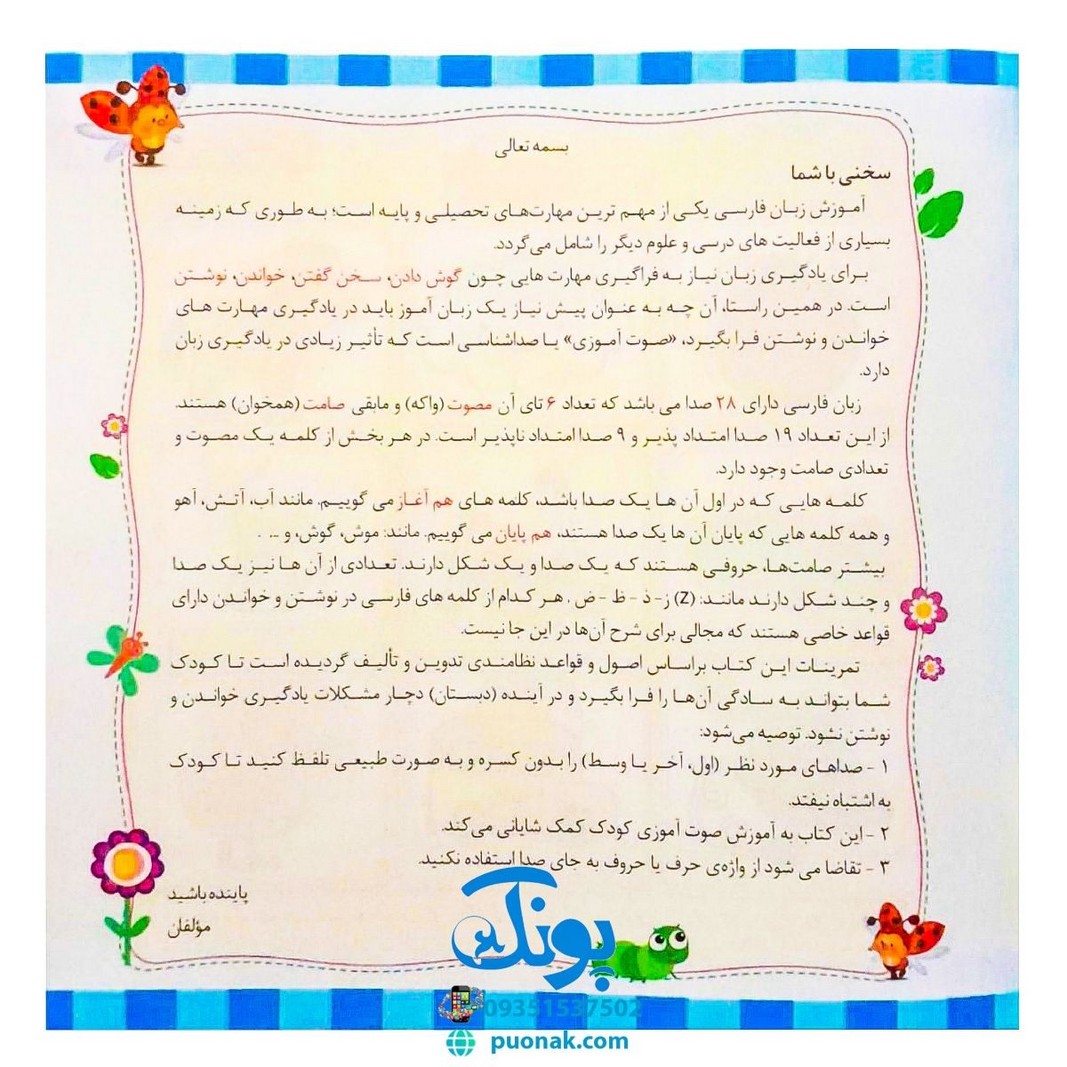 بسمه تعالی
سخنی با شما
آموزش زبان فارسی یکی از مهم ترین مهارت‌های تحصیلی و پایه است؛ به طوری که زمینه
بسیاری از فعالیت های درسی و علوم دیگر را شامل می‌گردد.
برای یادگیری زبان نیاز به فراگیری مهارت هایی چون گوش دادن، سخن گفتن، خواندن، نوشتن
است. در همین راستا، آن چه به عنوان پیش نیاز یک زبان آموز باید در یادگیری مهارت های
خواندن و نوشتن فرا بگیرد، «صوت آموزی» یا صداشناسی است که تأثیر زیادی در یادگیری زبان
دارد.
زبان فارسی دارای ۲۸ صدا می باشد که تعداد ۶ تای آن مصوت (واکه) و مابقی صامت (همخوان) هستند.
از این تعداد ۱۹ صدا امتداد پذیر و ۹ صدا امتداد ناپذیر است. در هر بخش از کلمه یک مصوت و
تعدادی صامت وجود دارد.
کلمه هایی که در اول آن ها یک صدا باشد، کلمه های هم آغاز می گوییم. مانند آب، آتش، آهو
و همه کلمه هایی که پایان آن ها یک صدا هستند، هم پایان می گوییم. مانند: موش، گوش، و ... .
بیشتر صامت‌ها، حروفی هستند که یک صدا و یک شکل دارند. تعدادی از آن ها نیز یک صدا
و چند شکل دارند مانند: (Z) ز- ذ - ظ - ض . هر کدام از کلمه های فارسی در نوشتن و خواندن دارای
قواعد خاصی هستند که مجالی برای شرح آن‌ها در این جا نیست.
تمرینات این کتاب براساس اصول و قواعد نظامندی تدوین و تألیف گردیده است تا کودک
شما بتواند به سادگی آن‌ها را فرا بگیرد و در آینده (دبستان) دچار مشکلات یادگیری خواندن و
نوشتن نشود. توصیه می‌شود:
۱ - صداهای مورد نظر (اول، آخر یا وسط) را بدون کسره و به صورت طبیعی تلفظ کنید تا کودک
به اشتباه نیفتد.
۲ - این کتاب به آموزش صوت آموزی کودک کمک شایانی می‌کند.
۳ - تقاضا می شود از واژه‌ی حرف یا حروف به جای صدا استفاده نکنید.
پاینده باشید
مؤلفان
پونک
09351537502
puonak.com